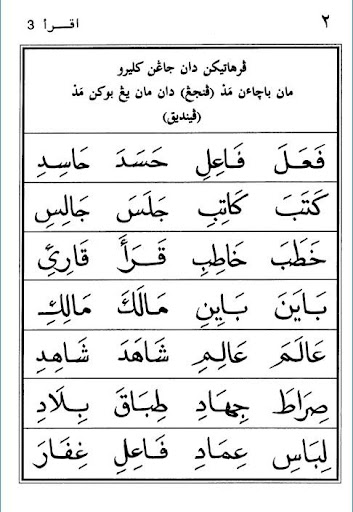 ٢ اقرأ 3
ڤرهاتيكن دان جاڠن كليرو
مان باچاٴن مَدْ (ڤنجڠ) دان مان يڠ بوكن مَدْ
(ڤينديق)
فَعَلَ فَاعِلِ حَسَدَ حَاسِدِ
كَتَبَ كَاتِبِ جَلَسَ جَالِسِ
خَطَبَ خَاطِبِ قَرَأَ قَارِئِ
بَايَنَ بَايِنِ مَالَكَ مَالِكِ
عَالَمَ عَالِمِ شَاهَدَ شَاهِدِ
صِرَاطَ جِهَادِ طِبَاقَ بِلَادِ
لِبَاسِ عِمَادِ فَاعِلِ غِفَارَ